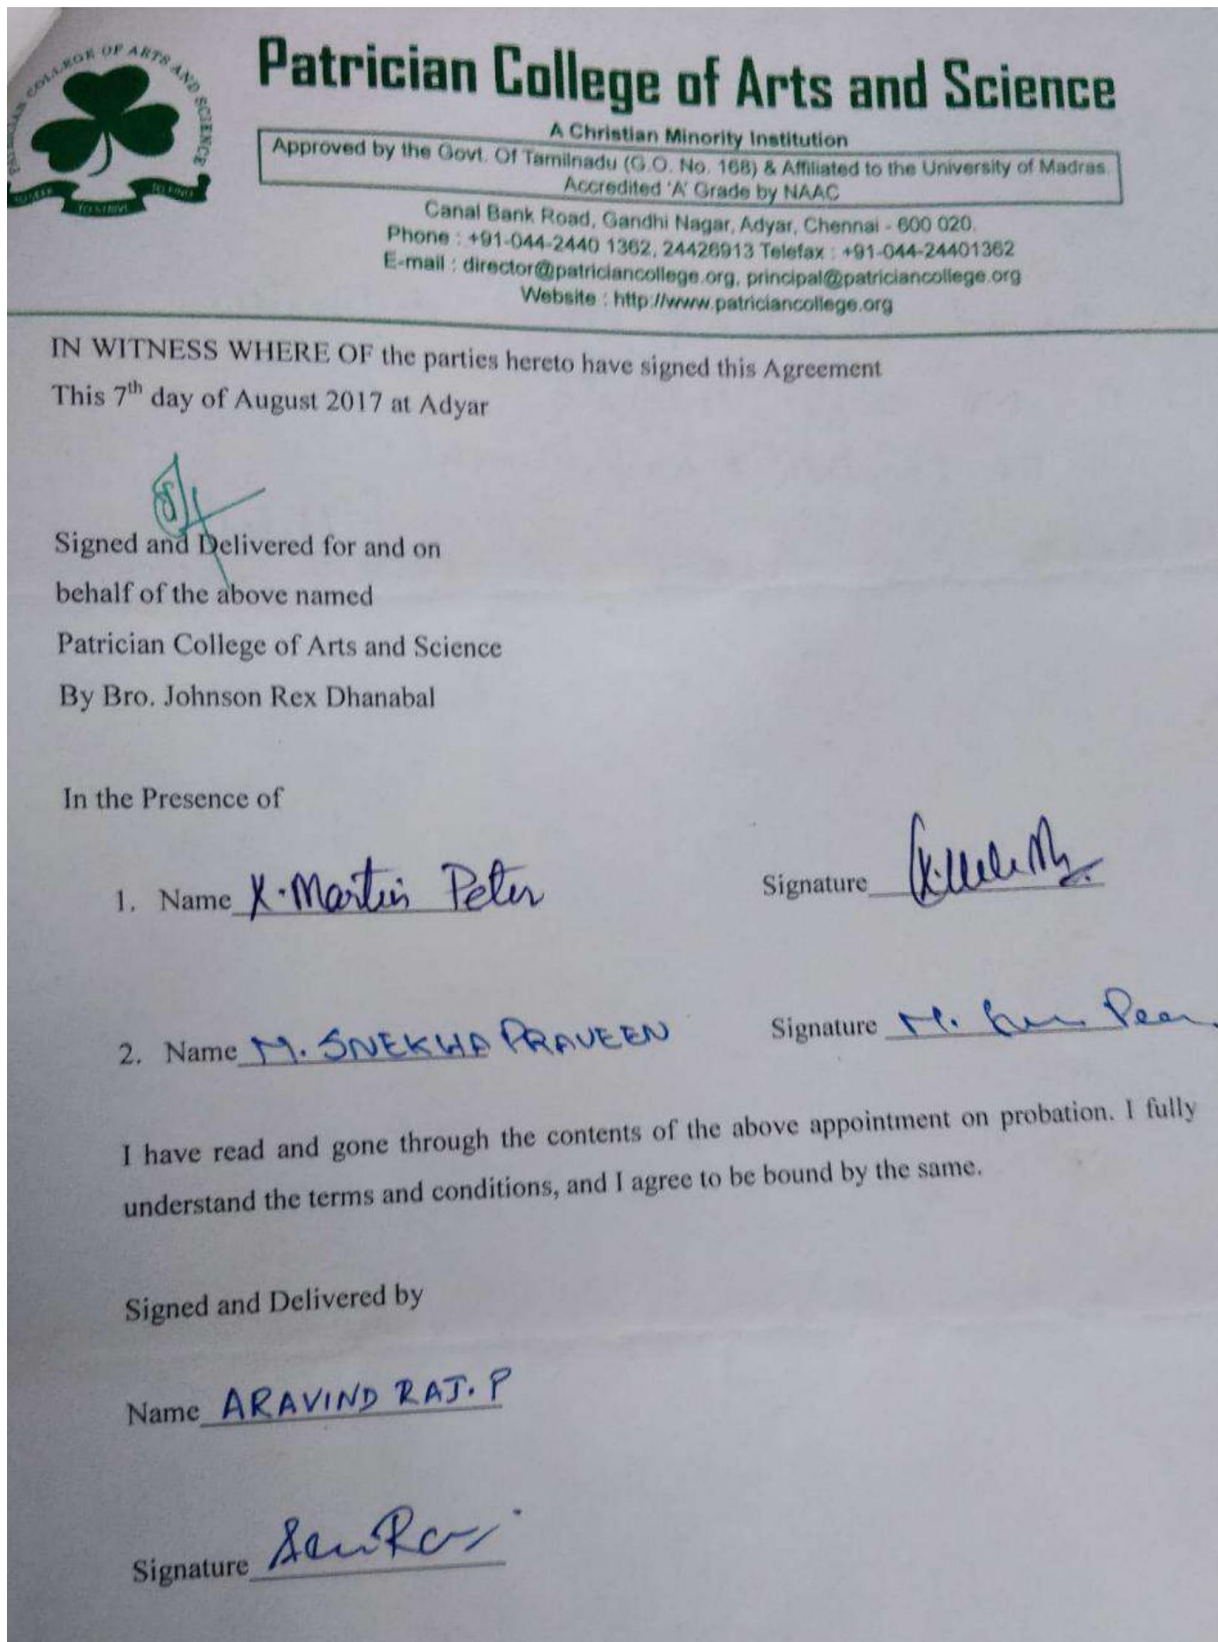 PATRICIAN COLLEGE OF ARTS AND SCIENCE
TO SEEK TO STRIVE TO FIND
Patrician College of Arts and Science
A Christian Minority Institution
Approved by the Govt. Of Tamilnadu (G.O. No. 168) & Affiliated to the University of Madras.
Accredited 'A' Grade by NAAC
Canal Bank Road, Gandhi Nagar, Adyar, Chennai - 600 020.
Phone : +91-044-2440 1362, 24426913 Telefax : +91-044-24401362
E-mail : director@patriciancollege.org, principal@patriciancollege.org
Website : http://www.patriciancollege.org
IN WITNESS WHERE OF the parties hereto have signed this Agreement
This 7th day of August 2017 at Adyar
Signed and Delivered for and on
behalf of the above named
Patrician College of Arts and Science
By Bro. Johnson Rex Dhanabal
In the Presence of
1. Name X. Martin Peter Signature
2. Name M. SNEKHA PRAVEEN Signature M.
I have read and gone through the contents of the above appointment on probation. I fully
understand the terms and conditions, and I agree to be bound by the same.
Signed and Delivered by
Name ARAVIND RAJ. P
Signature